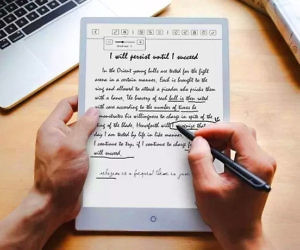 I will persist until I succeed
In the Orient young bulls are tested for the fight
arena in a certain manner. Each is brought to the
ring and allowed to attack a picador who pricks them
with a lance. The bravery of each bull is then rated
with care according to the number of times he
demonstrates his willingness to charge in spite of the
sting of the blade. Henceforth will I recognize that
day I am tested by life in like manner.
I try, if I continue to charge
will succeed.